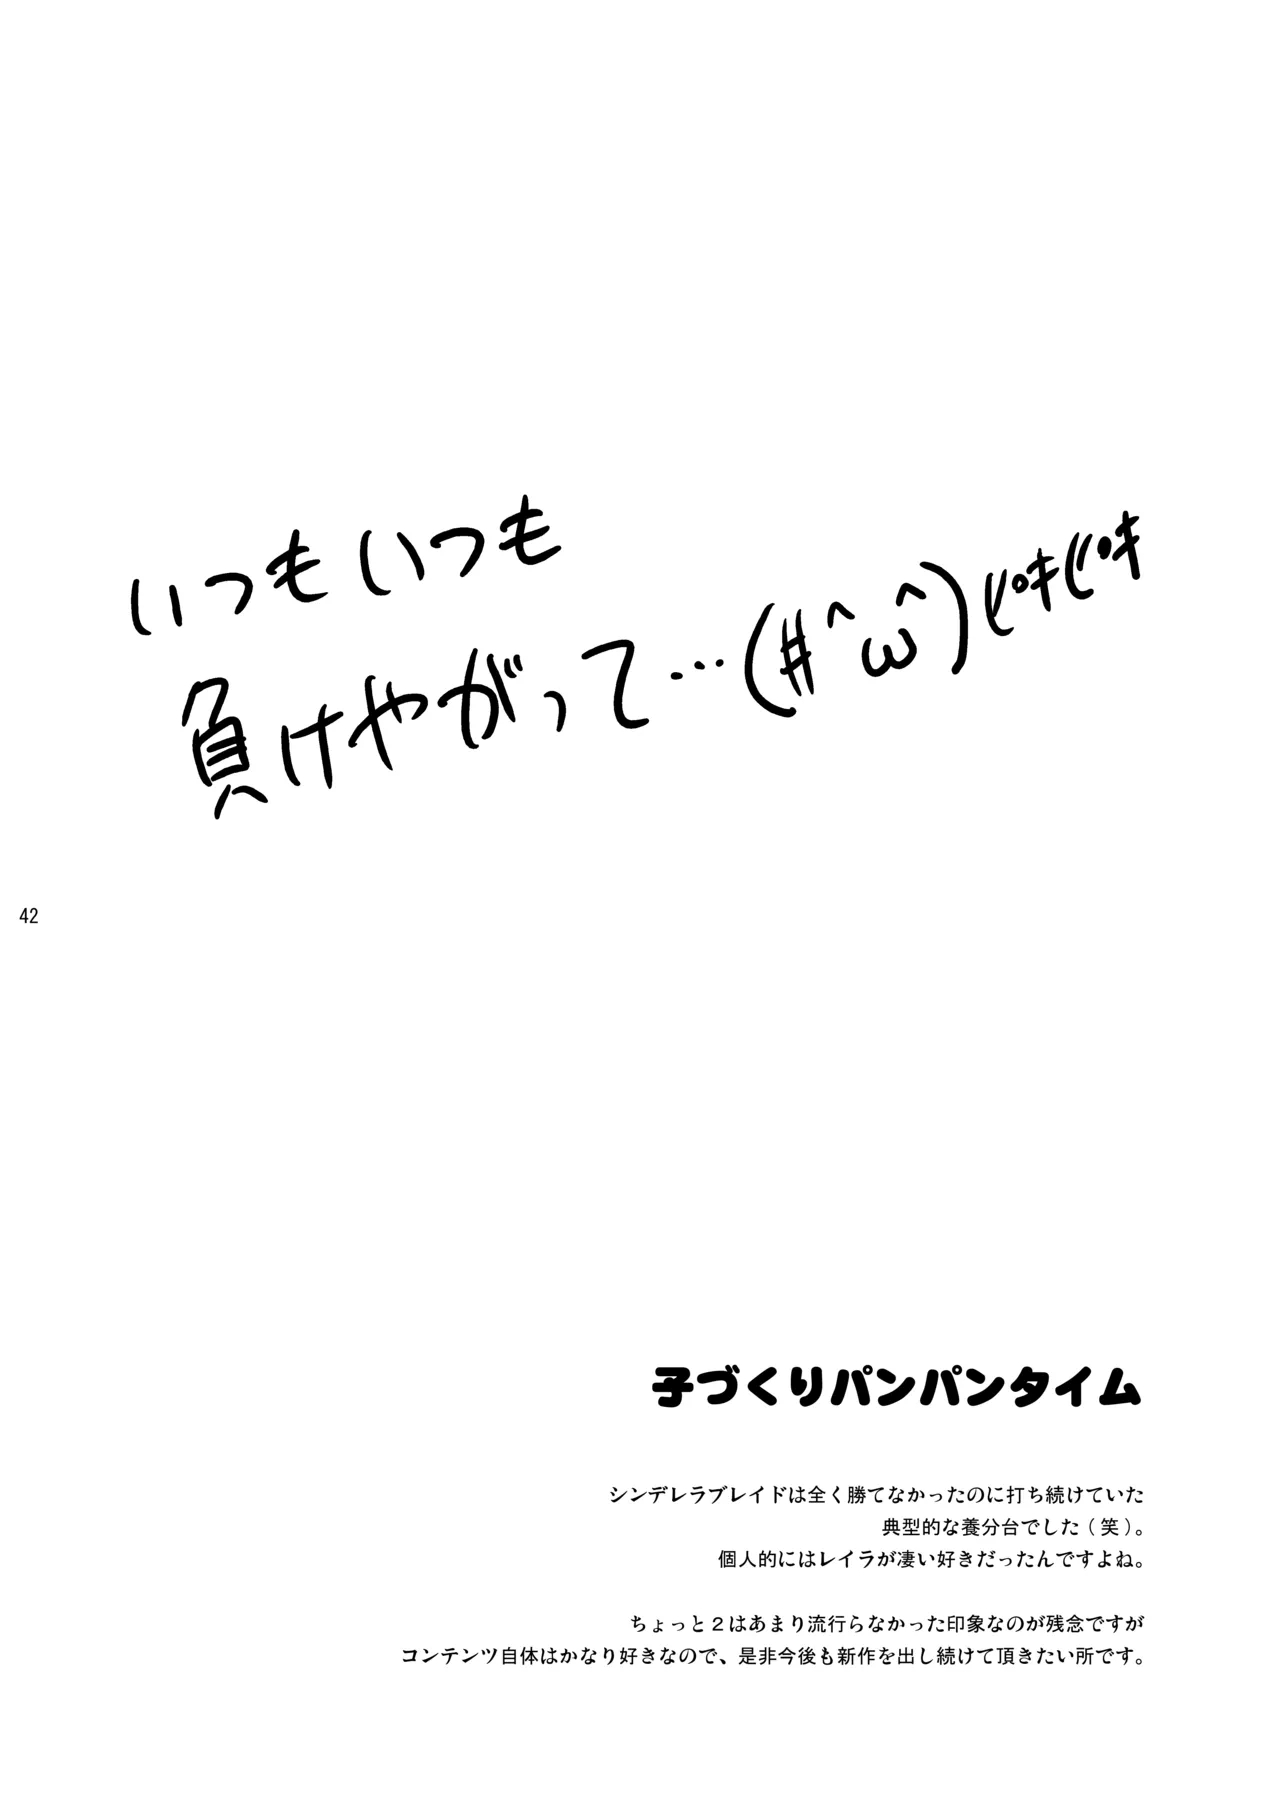 いつもいつも
負けやがって…(#^ω^)ピキピキ
42
子づくりパンパンタイム
シンデレラブレイドは全く勝てなかったのに打ち続けていた
典型的な養分台でした(笑)。
個人的にはレイラが凄い好きだったんですよね。
ちょっと2はあまり流行らなかった印象なのが残念ですが
コンテンツ自体はかなり好きなので、是非今後も新作を出し続けて頂きたい所です。